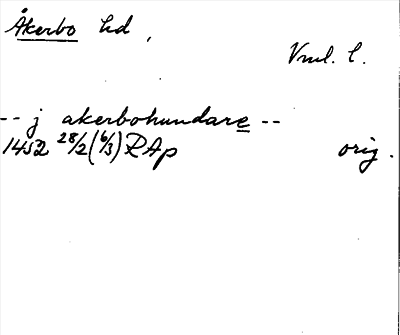 Åkerbo hd,
Vml. l.
-- j akerbohundare --
1452 28/2 (6/3) RAp orig.